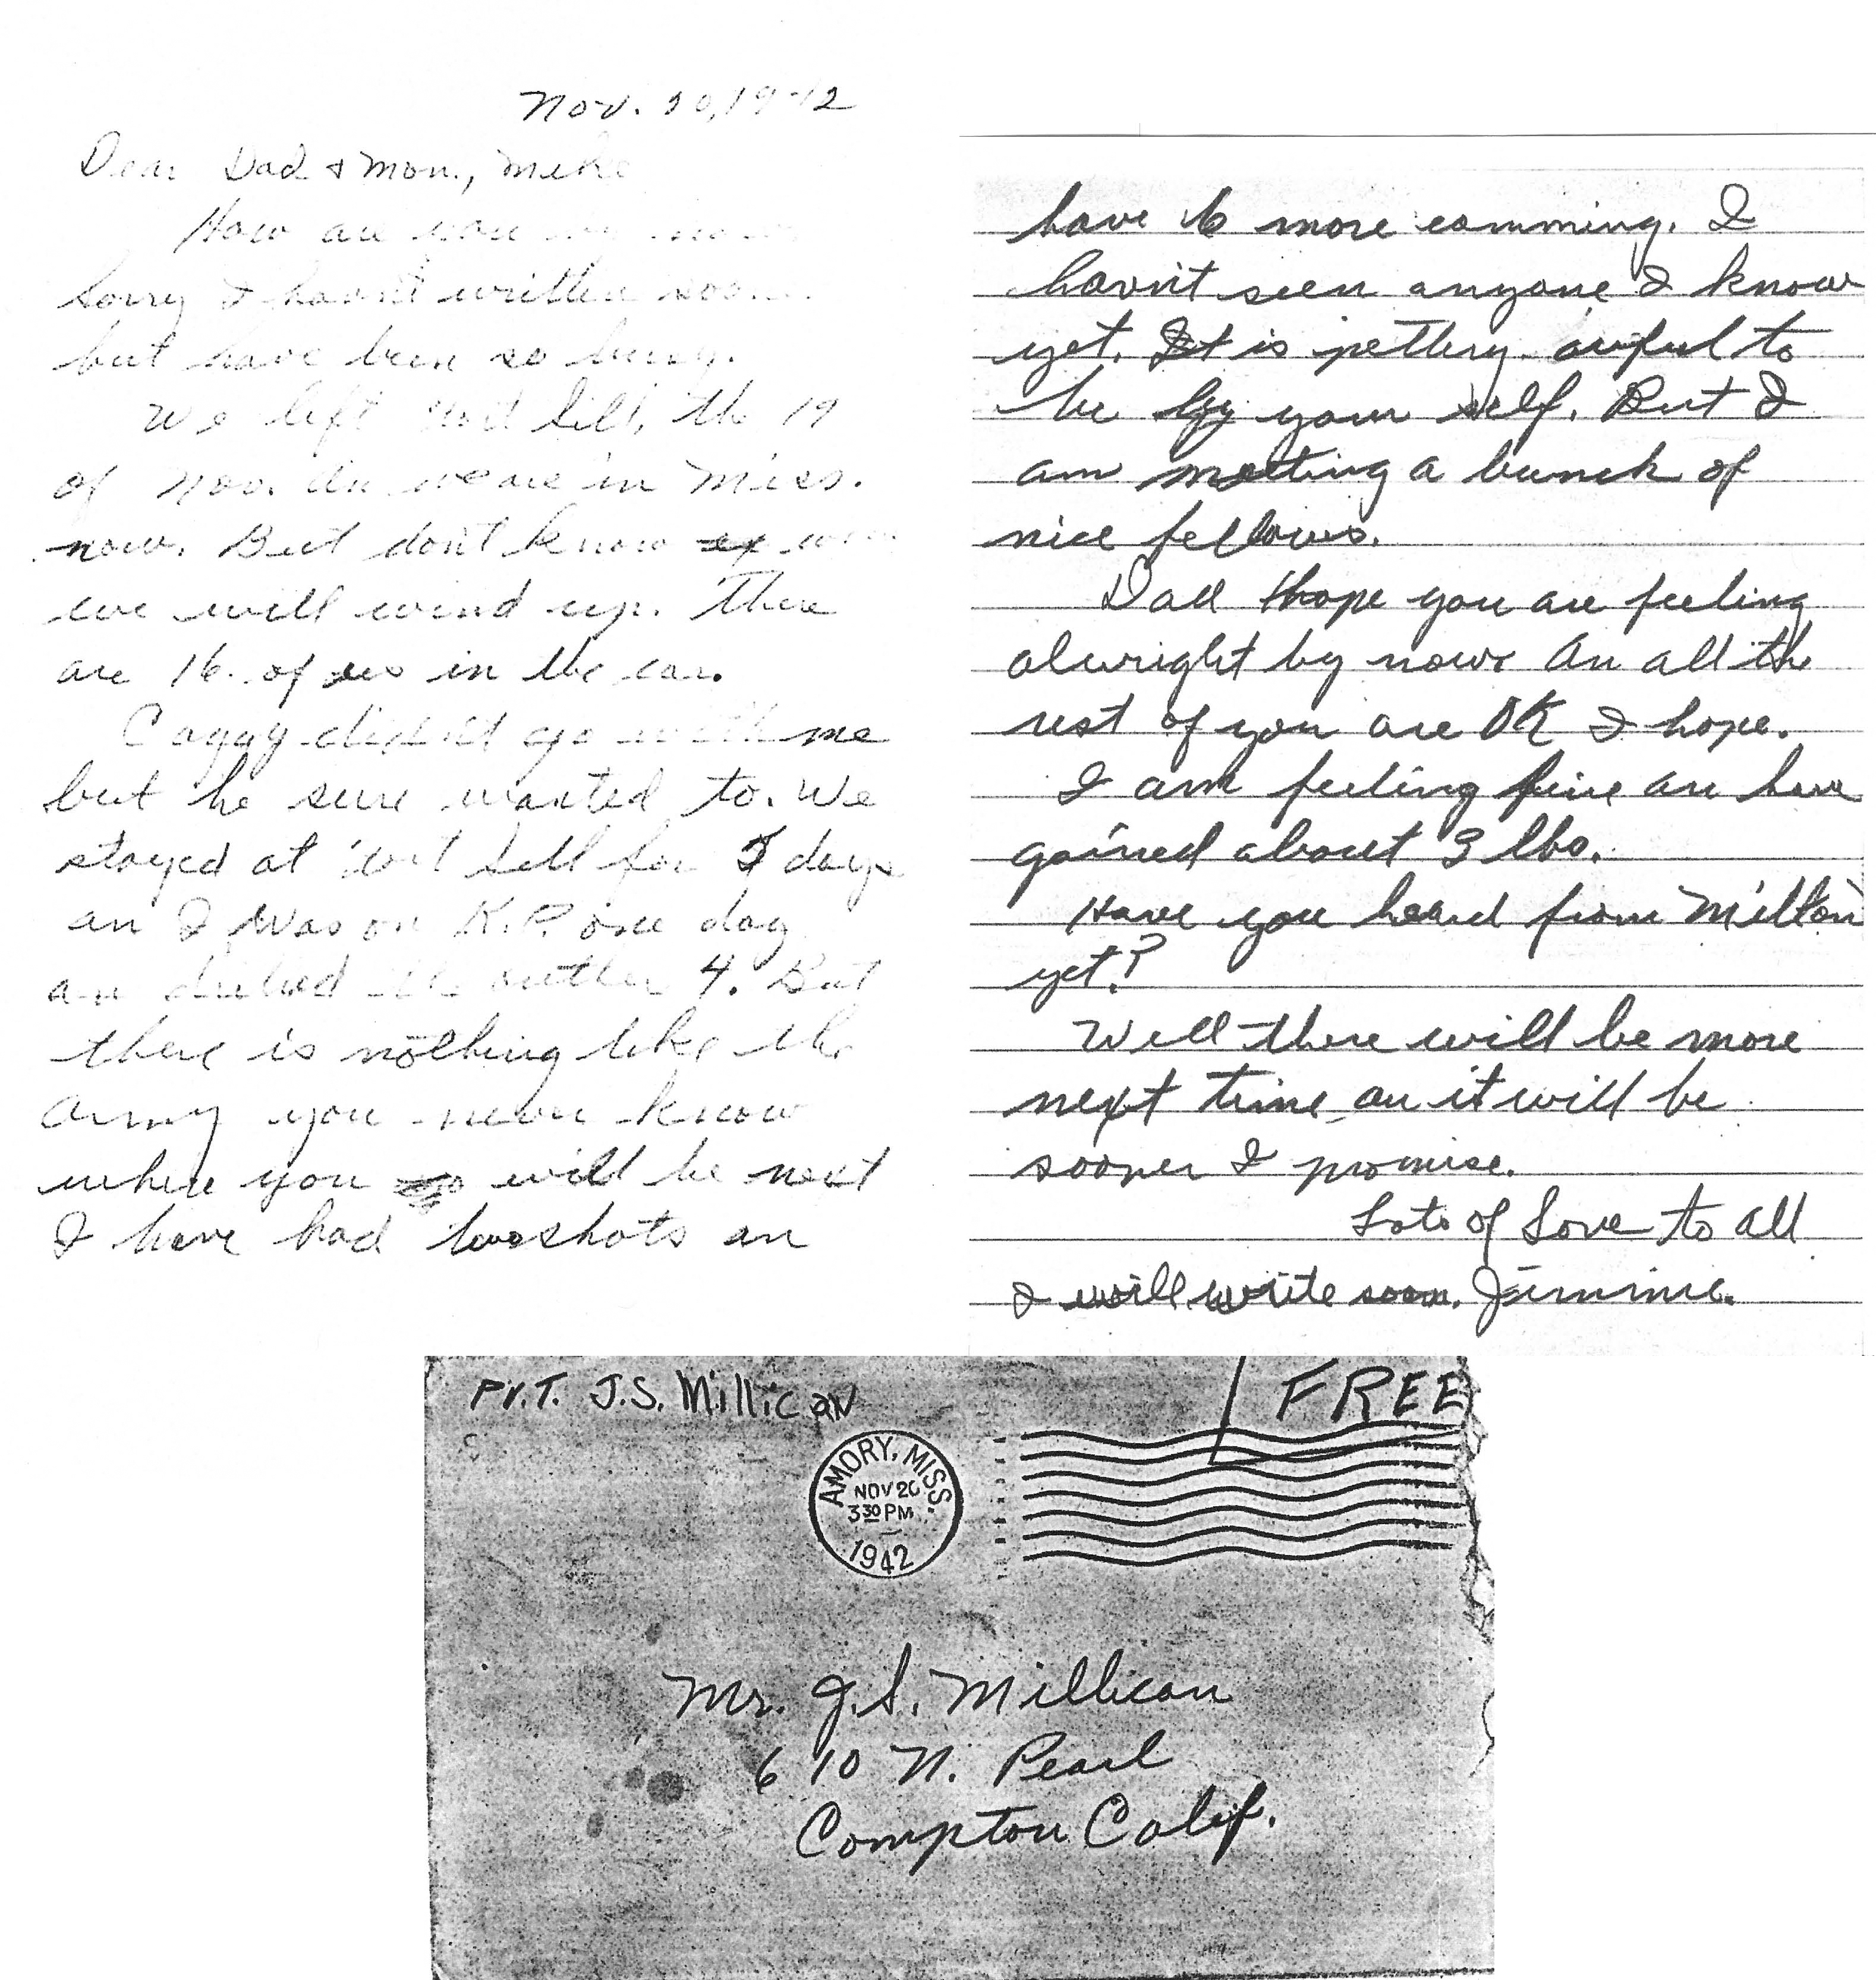 Nov. 20, 1942
Dear Dad & Mom., Mike
How are you
sorry I havn't written soon
but have been so busy.
We left Fort Sill, the 19
of Nov. An we are in Miss.
now. But don't know
we will wind up. There
are 16 of us in the car.
didn't go with me
but he sure wanted to. We
stayed at Fort Sill for 5 days
an I was on K.P. one day
an the outher 4. But
there is nothing like the
army you never know
where you will be next
I have had two shots an
have 6 more comming. I
havn't seen anyone I know
yet. It is pettery awful to
be by your self. But I
am meeting a bunch of
nice fellows.
Dad I hope you are feeling
alwright by now. An all the
rest of you are OK I hope.
I am feeling fine an have
gained about 3 lbs.
Have you heard from Milton
yet?
Well there will be more
next time an it will be
sooner I promise.
Lots of Love to all
I will write soon. Jimmie.
PVT. J.S. Millican
FREE
AMORY, MISS.
NOV 20
3 30 PM
1942
Mr. J.S. Millican
610 N. Pearl
Compton Calif.